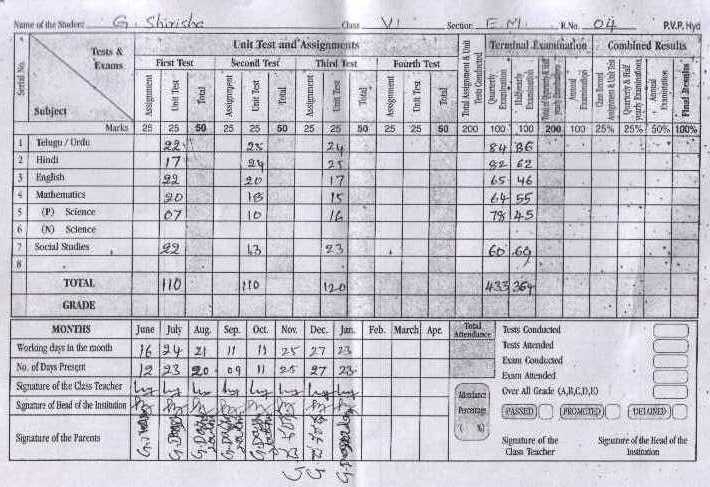 Name of the Student G. Shirisha Class VI Section E.M. R.No. 04 P.V.P. Hyd
Serial No. Tests & Exams Subject Unit Test and Assignments Total Assignment & Unit Tests Conducted Terminal Examination Combined Results
First Test Second Test Third Test Fourth Test
Assignment Unit Test Total Assignment Unit Test Total Assignment Unit Test Total Assignment Unit Test Total Quarterly Examination Halfyearly Examination Total of Quarterly & Half yearly Examinations Annual Examination Class Record Assignment & Unit Test Quarterly & Half yearly Examinations Annual Examination Final Results
Marks 25 25 50 25 25 50 25 25 50 25 25 50 200 100 100 200 100 25% 25% 50% 100%
1 Telugu / Urdu 22 25 24 84 86
2 Hindi 17 24 25 82 62
3 English 22 20 17 65 46
4 Mathematics 20 18 15 64 55
5 (P) Science 07 10 16 78 45
6 (N) Science
7 Social Studies 22 13 23 60 69
8
TOTAL 110 110 120 433 364
GRADE
MONTHS June July Aug. Sep. Oct. Nov. Dec. Jan. Feb. March Apr. Total Attendance
Working days in the month 16 24 21 11 11 25 27 23
No. of Days Present 12 23 20 09 11 25 27 23
Signature of the Class Teacher
Signature of Head of the Institution
Signature of the Parents
Attendance Percentage ( %)
Tests Conducted
Tests Attended
Exam Conducted
Exam Attended
Over All Grade (A,B,C,D,E)
PASSED PROMOTED DETAINED
Signature of the Class Teacher Signature of the Head of the Institution